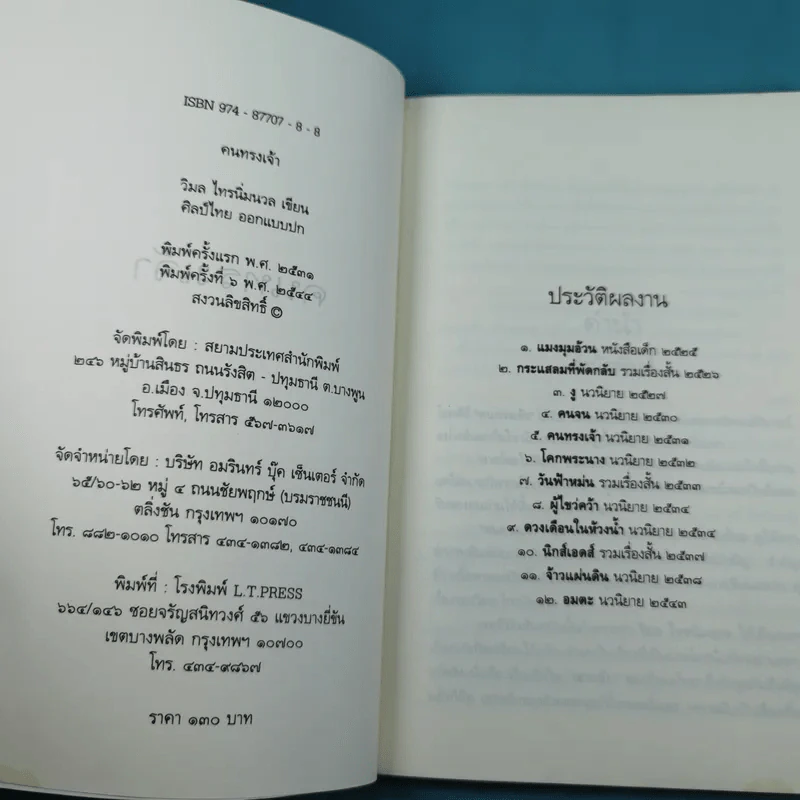 ISBN 974 - 87707 - 8 - 8
คนทรงเจ้า
วิมล ไทรนิ่มนวล เขียน
ศิลป์ไทย ออกแบบปก
พิมพ์ครั้งแรก พ.ศ. ๒๕๓๑
พิมพ์ครั้งที่ ๖ พ.ศ. ๒๕๔๔
สงวนลิขสิทธิ์ ©
จัดพิมพ์โดย : สยามประเทศสำนักพิมพ์
๒๔๖ หมู่บ้านสินธร ถนนรังสิต - ปทุมธานี ต.บางพูน
อ.เมือง จ.ปทุมธานี ๑๒๐๐๐
โทรศัพท์, โทรสาร ๕๖๗-๓๖๑๗
จัดจำหน่ายโดย : บริษัท อมรินทร์ บุ๊ค เซ็นเตอร์ จำกัด
๖๕/๖๐-๖๒ หมู่ ๔ ถนนชัยพฤกษ์ (บรมราชชนนี)
ตลิ่งชัน กรุงเทพฯ ๑๐๑๗๐
โทร. ๘๘๒-๑๐๑๐ โทรสาร ๔๓๔-๑๓๘๒, ๔๓๔-๑๓๘๔
พิมพ์ที่ : โรงพิมพ์ L.T.PRESS
๖๖๔/๑๔๖ ซอยจรัญสนิทวงศ์ ๕๖ แขวงบางยี่ขัน
เขตบางพลัด กรุงเทพฯ ๑๐๗๐๐
โทร. ๔๓๔-๙๘๖๗
ราคา ๑๓๐ บาท
ประวัติผลงาน
๑. แมงมุมอ้วน หนังสือเด็ก ๒๕๒๕
๒. กระแสลมที่พัดกลับ รวมเรื่องสั้น ๒๕๒๖
๓. งู นวนิยาย ๒๕๒๗
๔. คนจน นวนิยาย ๒๕๓๐
๕. คนทรงเจ้า นวนิยาย ๒๕๓๑
๖. โคกพระนาง นวนิยาย ๒๕๓๒
๗. วันฟ้าหม่น รวมเรื่องสั้น ๒๕๓๓
๘. ผู้ไขว่คว้า นวนิยาย ๒๕๓๔
๙. ดวงเดือนในห้วงน้ำ นวนิยาย ๒๕๓๔
๑๐. นิกส์เอดส์ รวมเรื่องสั้น ๒๕๓๗
๑๑. จ้าวแผ่นดิน นวนิยาย ๒๕๓๘
๑๒. อมตะ นวนิยาย ๒๕๔๓